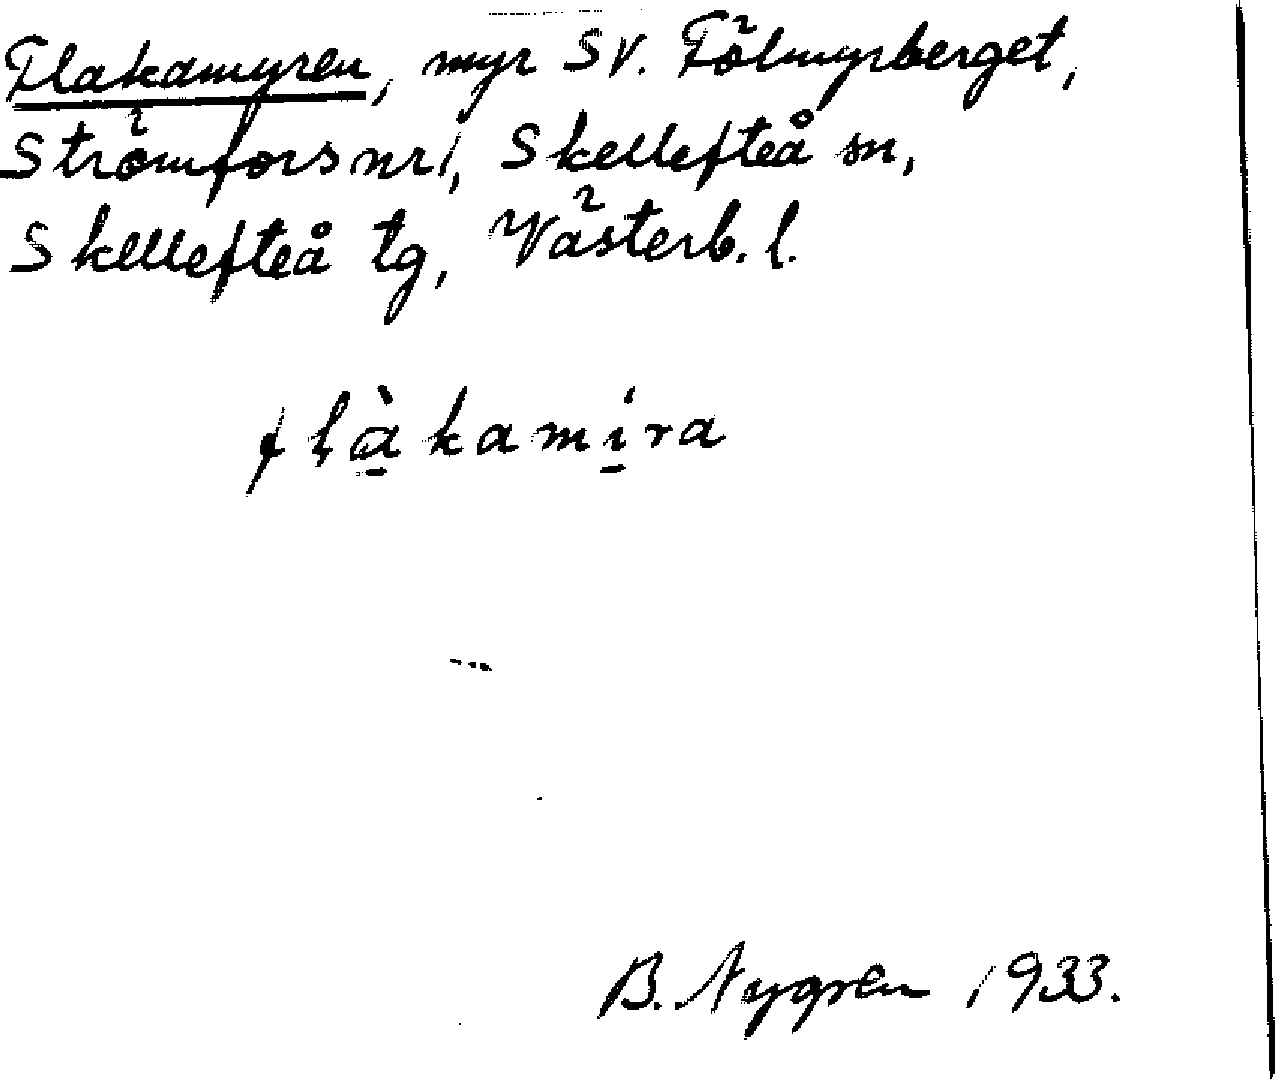 Flakamyren, myr SV. Fölmyrberget,
Strömfors nr 1, Skellefteå sn,
Skellefteå tg, Västerb. l.
flàkamíra
B. Nygren 1933.